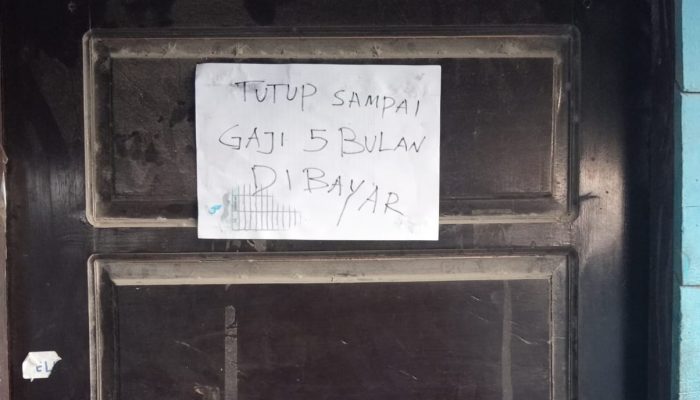 TUTUP SAMPAI
GAJI 5 BULAN
DIBAYAR